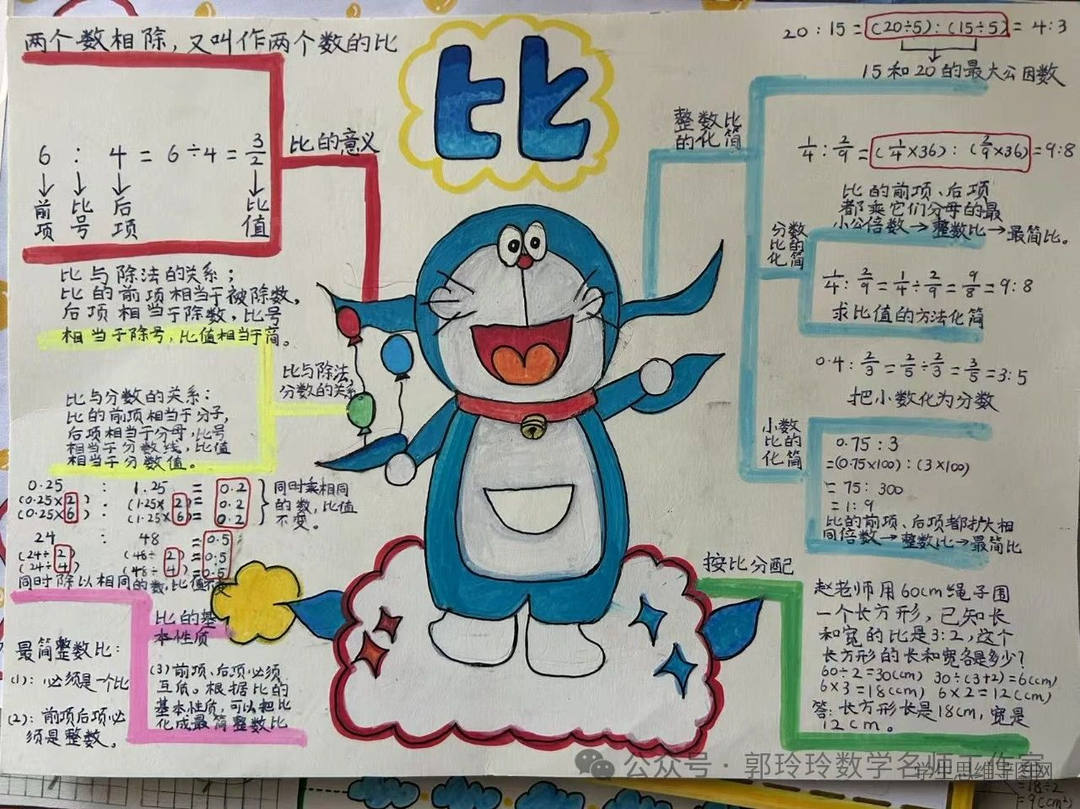 比
两个数相除，又叫作两个数的比
比的意义
6 : 4 = 6÷4 = 3/2
前项 比号 后项 比值
比与除法的关系；
比的前项相当于被除数，
后项相当于除数，比号
相当于除号，比值相当于商。
比与除法、
分数的关系
比与分数的关系：
比的前项相当于分子，
后项相当于分母，比号
相当于分数线，比值
相当于分数值。
0.25 : 1.25 = 0.2
(0.25×2) : (1.25×2) = 0.2
(0.25×6) : (1.25×6) = 0.2
同时乘相同
的数，比值
不变。
24 : 48 = 0.5
(24÷2) (48÷2) = 0.5
(24÷4) (48÷4) = 0.5
同时除以相同的数，比值不变
比的基
本性质
最简整数比：
(1)：必须是个比
(2)：前项后项必
须是整数。
(3)前项、后项必须
互质。根据比的
基本性质，可以把比
化成最简整数比
整数比
的化简
20:15=(20÷5):(15÷5)=4:3
15和20的最大公因数
分数
比的
化简
1/4:2/9=(1/4×36):(2/9×36)=9:8
比的前项、后项
都乘它们分母的最
小公倍数→整数比→最简比。
1/4:2/9=1/4÷2/9=9/8=9:8
求比值的方法化简
小数
比的
化简
0.4:2/3=2/5÷2/3=3/5=3:5
把小数化为分数
0.75:3
=(0.75×100):(3×100)
=75:300
=1:9
比的前项、后项都扩大相
同倍数→整数比→最简比
按比分配
赵老师用60cm绳子围
一个长方形，已知长
和宽的比是3:2，这个
长方形的长和宽各是多少？
60÷2=30(cm) 30÷(3+2)=6(cm)
6×3=18(cm) 6×2=12(cm)
答：长方形长是18cm，宽是
12cm。
公众号·郭玲玲数学名师工作室
=18÷2
=9(cm²)